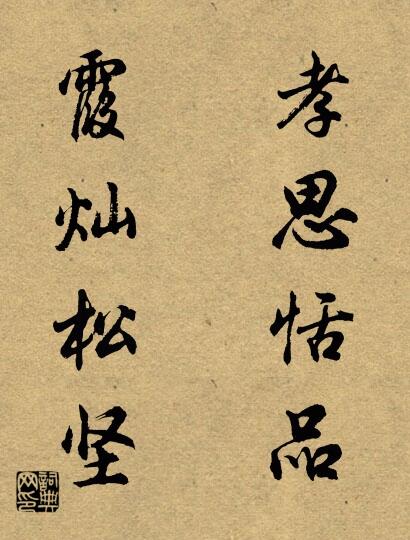 孝思恬品
霞灿松坚
詞典网印